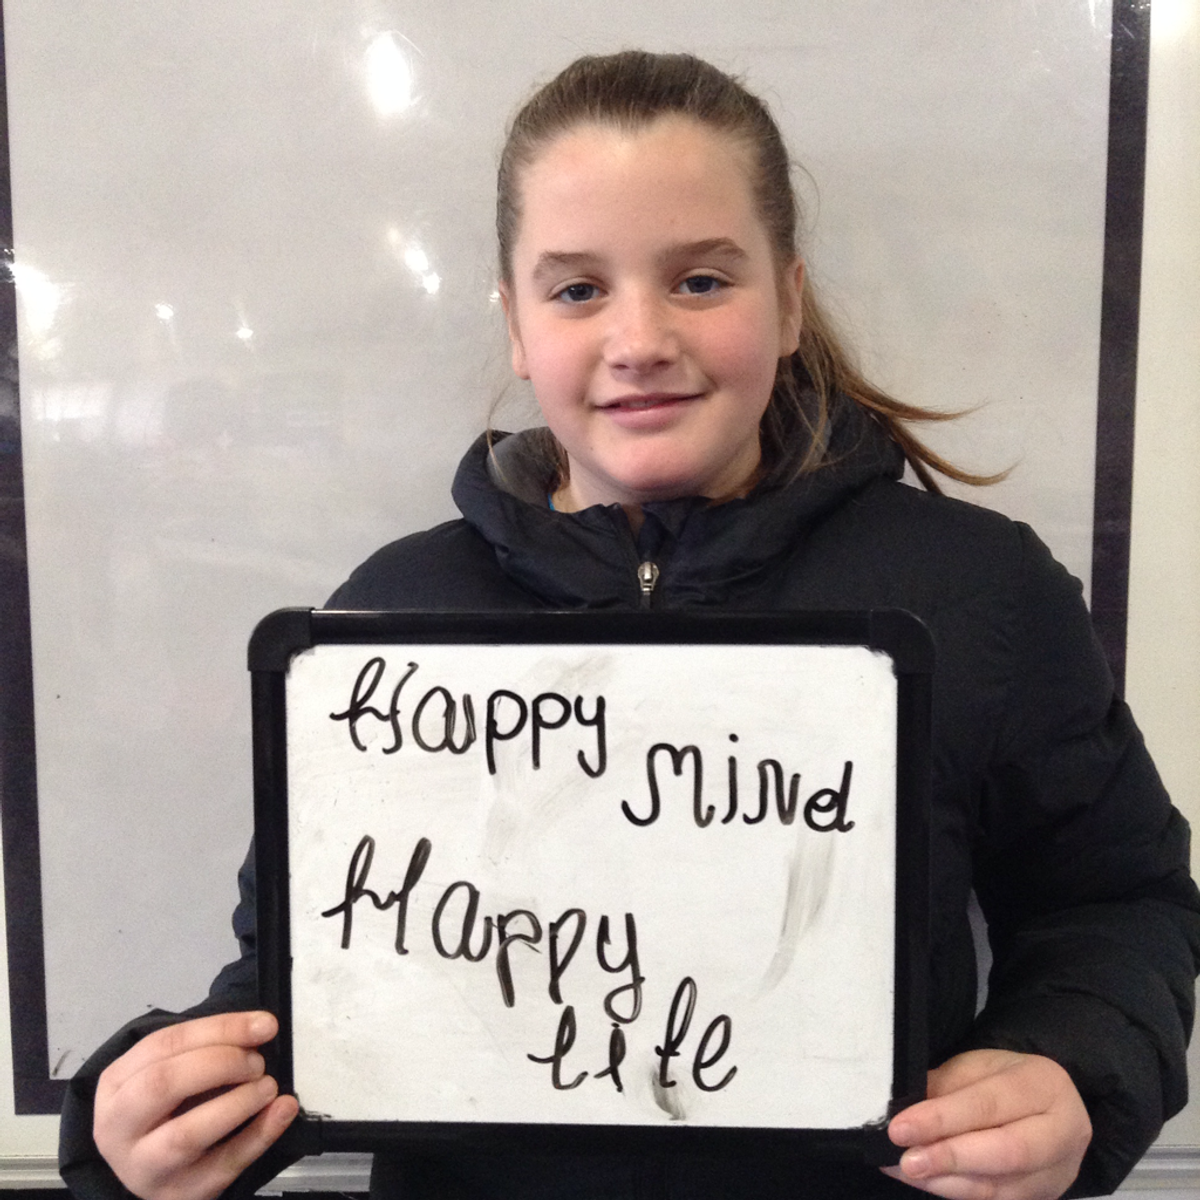 Happy
Mind
Happy
life